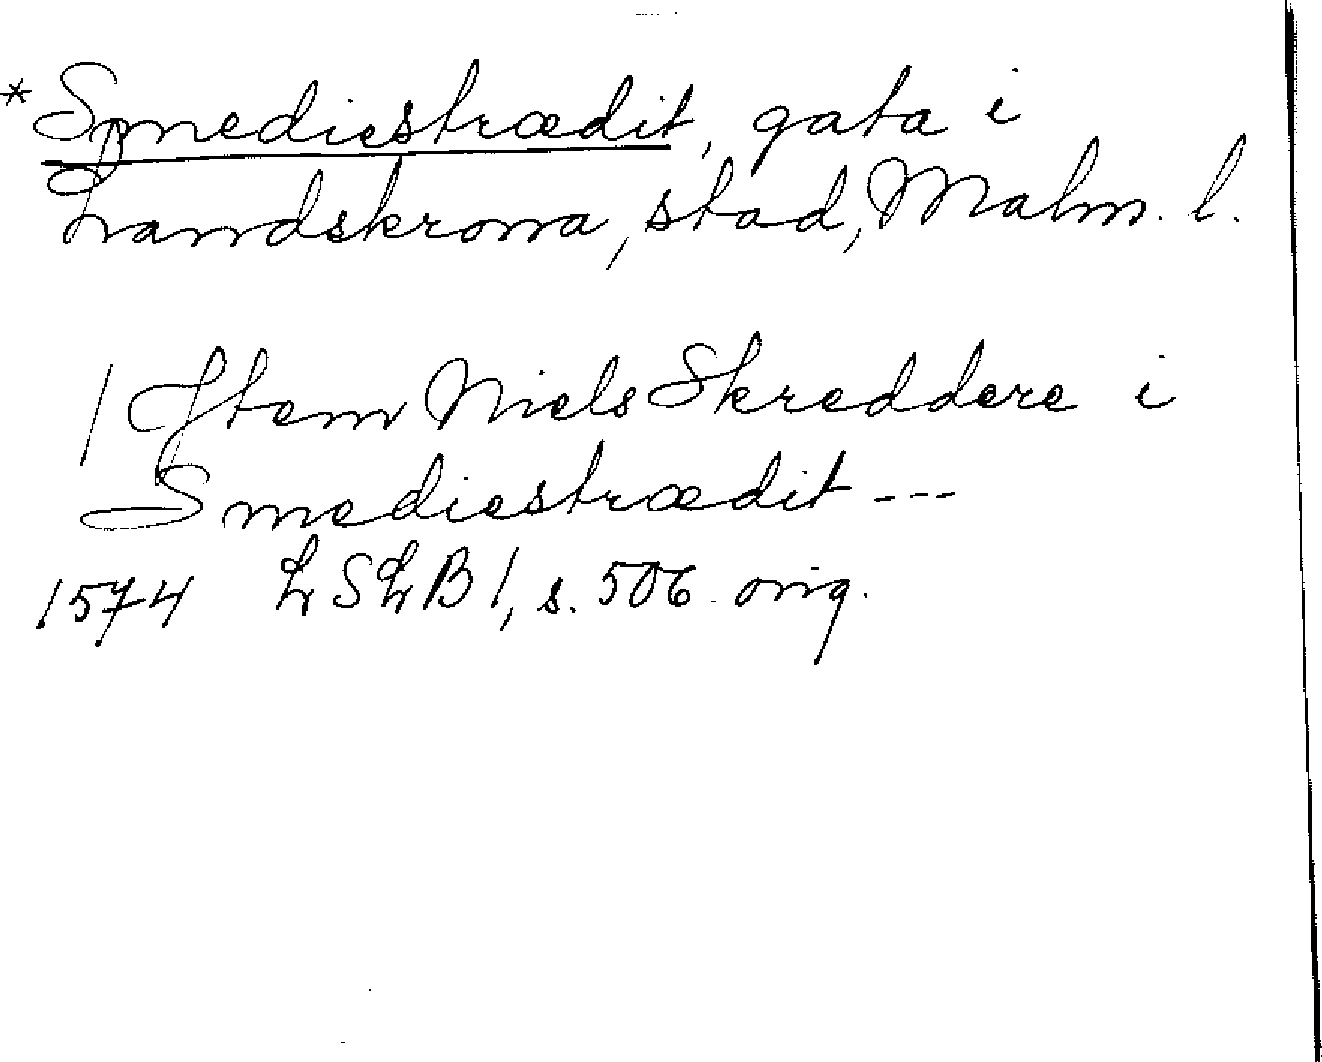 *Smediestrædit, gata i
Landskrona, stad, Malm. l.
/ Jtem Niels Skreddere i
Smediestrædit ---
1574 LSLB 1, s. 506. orig.